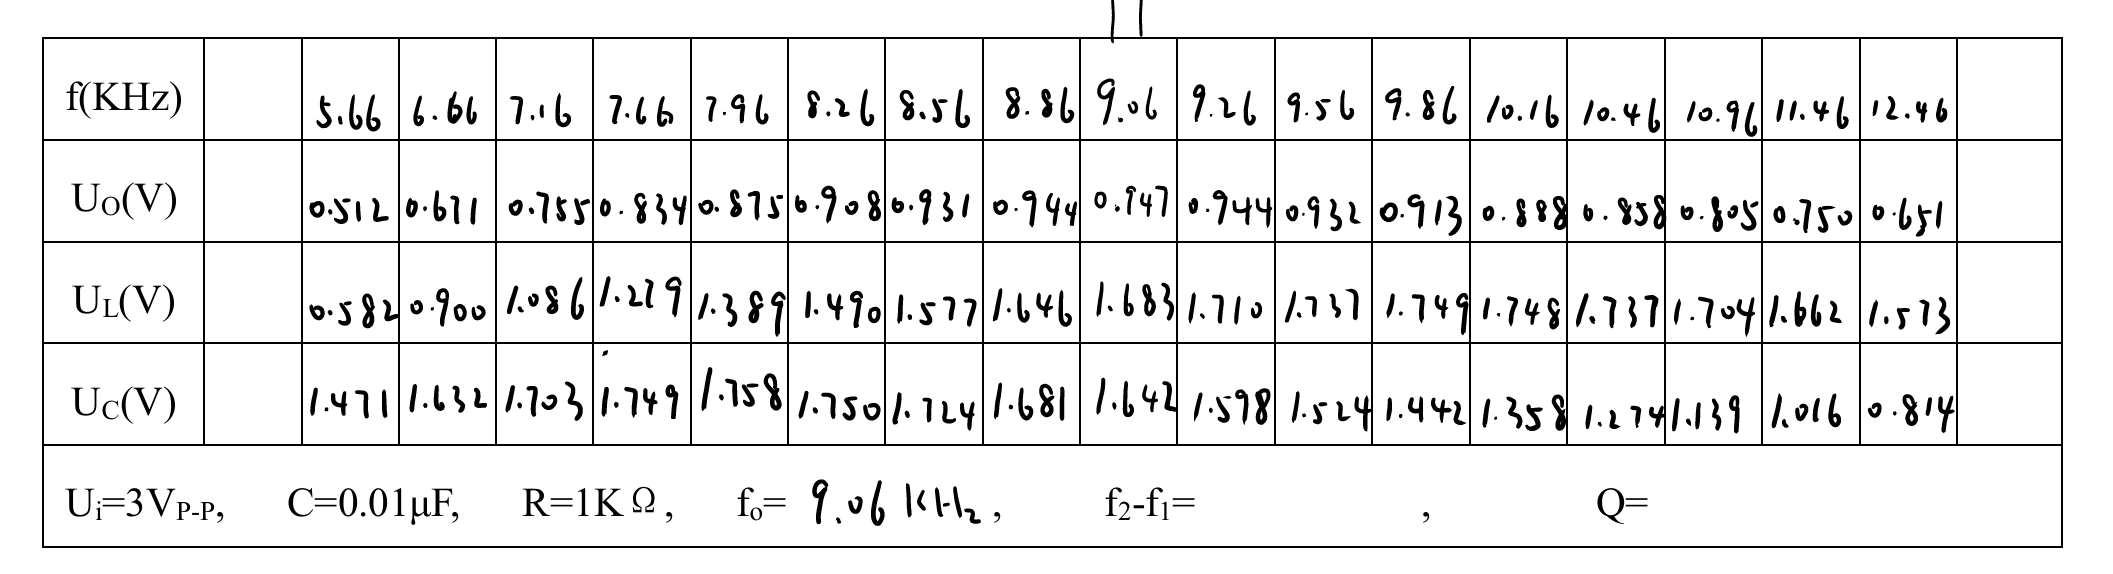 f(KHz) 5.66 6.66 7.16 7.66 7.96 8.26 8.56 8.86 9.06 9.26 9.56 9.86 10.16 10.46 10.96 11.46 12.46
UO(V) 0.512 0.671 0.755 0.834 0.875 0.908 0.931 0.944 0.947 0.944 0.932 0.913 0.888 0.858 0.805 0.750 0.651
UL(V) 0.582 0.900 1.086 1.279 1.389 1.490 1.577 1.646 1.683 1.710 1.737 1.749 1.748 1.737 1.704 1.662 1.573
UC(V) 1.471 1.632 1.703 1.749 1.758 1.750 1.724 1.681 1.642 1.598 1.524 1.442 1.358 1.274 1.139 1.016 0.814
Ui=3VP-P, C=0.01μF, R=1KΩ, fo= 9.06 KHz, f2-f1= , Q=